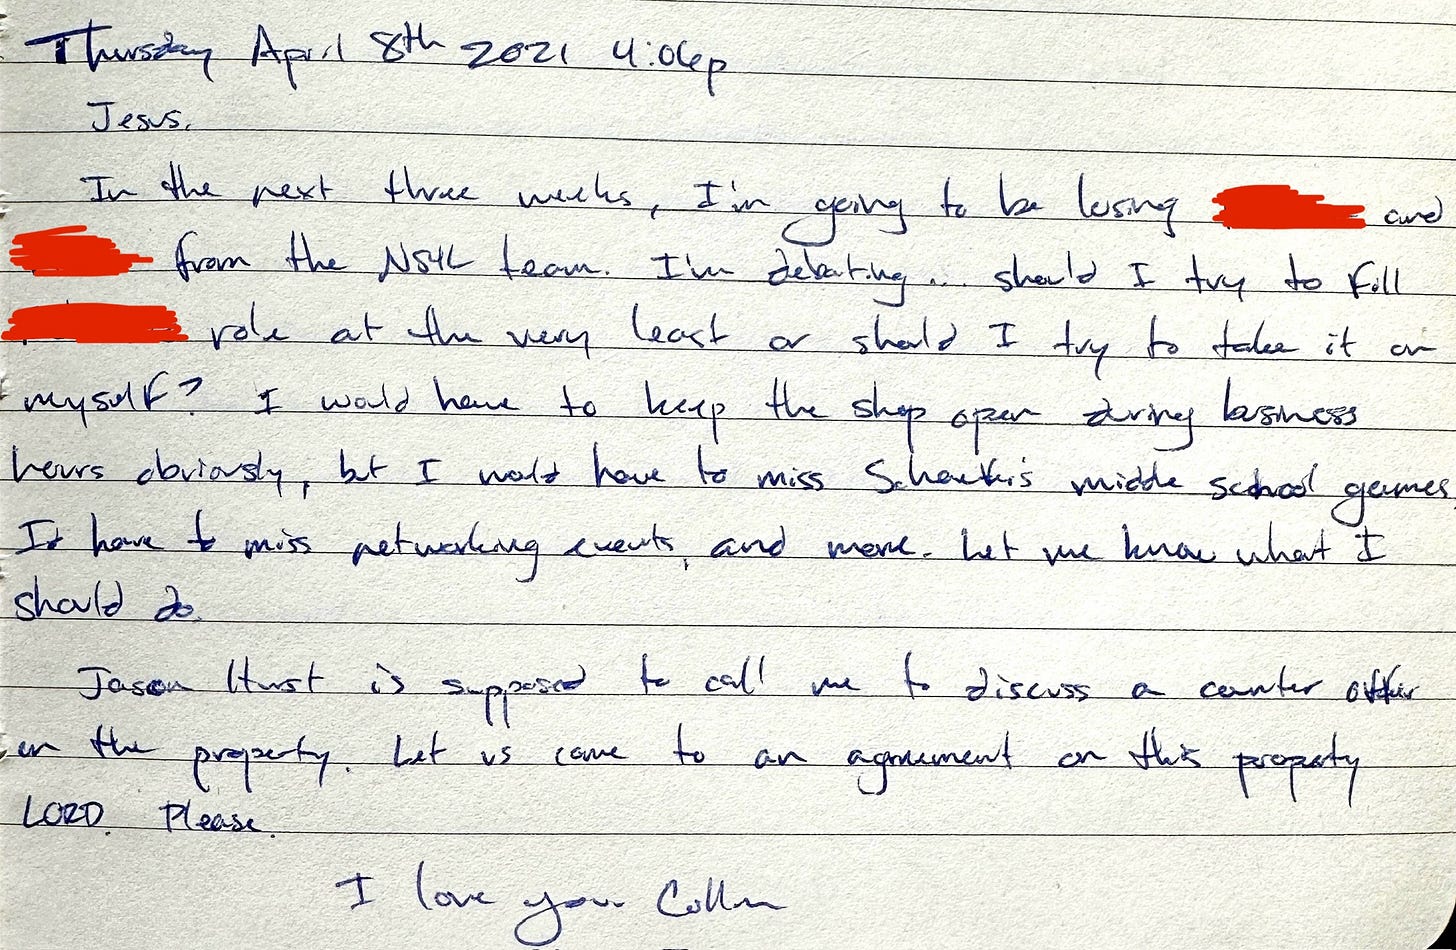 Thursday April 8th 2021 4:06p
Jesus.
In the next three weeks, I'm going to be losing and
from the NS4L team. I'm debating... should I try to fill
role at the very least or should I try to take it on
myself? I would have to keep the shop open during business
hours obviously, but I would have to miss middle school games
I'd have to miss networking events, and more. Let me know what I
should do.
Jason Hurst is supposed to call me to discuss a counter offer
on the property. Let us come to an agreement on this property
LORD. Please.
I love you